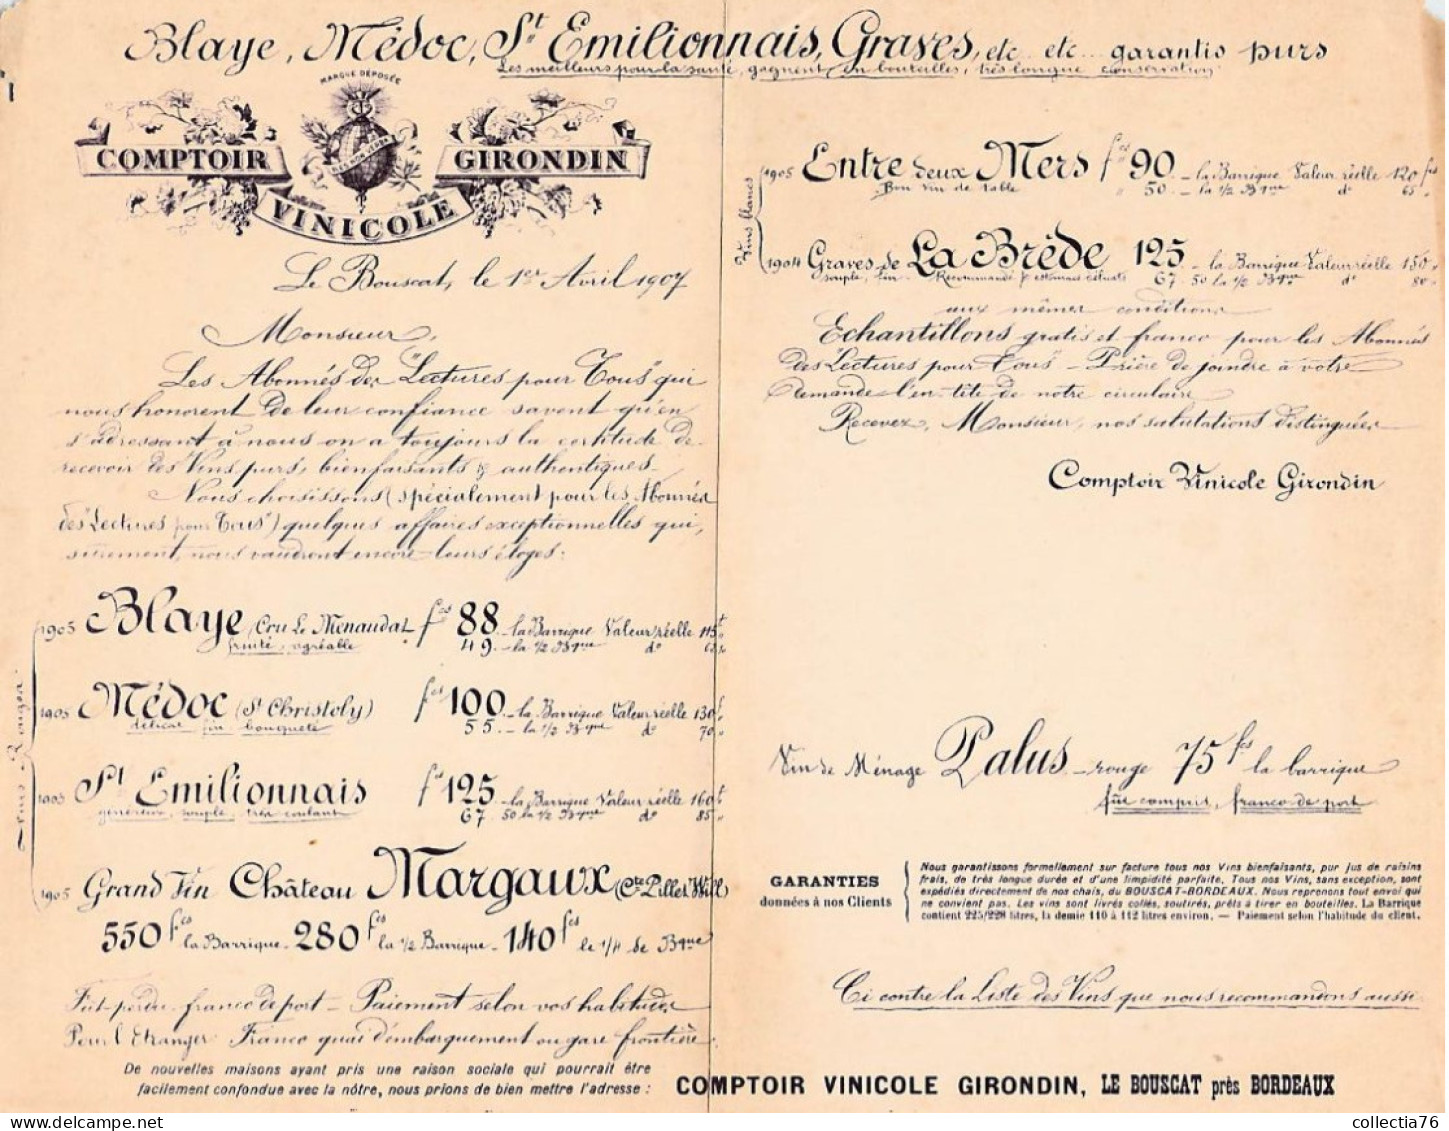 Blaye, Médoc, St Emilionnais, Graves, etc etc... garantis purs
Les meilleurs pour la santé, gagnent en bouteilles, très longue conservation.
MARQUE DÉPOSÉE
COMPTOIR GIRONDIN
VINICOLE
Le Bouscat, le 1er Avril 1907
Monsieur,
Les Abonnés des "Lectures pour Tous" qui
nous honorent de leur confiance savent qu'en
s'adressant à nous on a toujours la certitude de
recevoir des Vins purs, bienfaisants & authentiques.
Nous choisissons (spécialement pour les Abonnés
des "Lectures pour Tous") quelques affaires exceptionnelles qui,
sûrement, nous vaudront encore leurs éloges:
Vins Rouges
1905 Blaye (Cru Le Menaudat fcs 88 - la Barrique Valeur réelle 115
fruité, agréable 49. - la 1/2 Bque do
1905 Médoc (St Christoly) fcs 100 - la Barrique Valeur réelle 130f
délicat fin bouqueté 55. - la 1/2 Bque do 70
1905 St Emilionnais fcs 125 - la Barrique Valeur réelle 160
généreux, souple, très coulant 67.50 la 1/2 Bque do 85
1905 Grand Vin Château Margaux (Cte Pillet Will)
550 fcs la Barrique - 280 fcs la 1/2 Barrique - 140 fcs le 1/4 de Bque
Fût perdu - franco de port - Paiement selon vos habitudes
Pour l'Etranger: Franco quai d'embarquement ou gare frontière
De nouvelles maisons ayant pris une raison sociale qui pourrait être
facilement confondue avec la nôtre, nous prions de bien mettre l'adresse :
COMPTOIR VINICOLE GIRONDIN, LE BOUSCAT près BORDEAUX
Vins blancs
1905 Entre deux Mers fcs 90 - la Barrique Valeur réelle 120 fcs
Bon vin de table " 50. - la 1/2 Bque do 65 "
1904 Graves de La Brède 125 - la Barrique Valeur réelle 150 "
souple, fin - Recommandé & estomacs délicats 67.50 la 1/2 Bque do 80 "
aux mêmes conditions
Echantillons gratis et franco pour les Abonnés
des "Lectures pour Tous" - Prière de joindre à votre
demande l'en-tête de notre circulaire
Recevez, Monsieur, nos salutations distinguées
Comptoir Vinicole Girondin
Vin de Ménage Palus - rouge 75 fcs la barrique
fût compris, franco de port
GARANTIES
données à nos Clients
Nous garantissons formellement sur facture tous nos Vins bienfaisants, pur jus de raisins
frais, de très longue durée et d'une limpidité parfaite, Tous nos Vins, sans exception, sont
expédiés directement de nos chais, du BOUSCAT-BORDEAUX. Nous reprenons tout envoi qui
ne convient pas. Les vins sont livrés collés, soutirés, prêts à tirer en bouteilles. La Barrique
contient 225/228 litres, la demie 110 à 112 litres environ. — Paiement selon l'habitude du client.
Ci contre la Liste des Vins que nous recommandons aussi.
collectia76